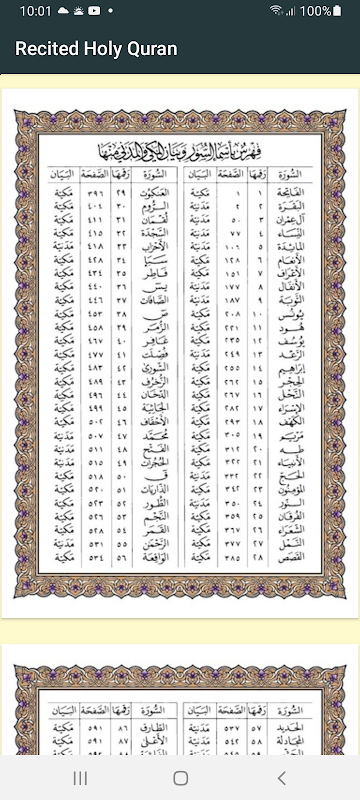 10:01
100%
Recited Holy Quran
فهرس بأسماء السور وبيان المكي والمدني منها
السورة رقمها الصفحة البيان السورة رقمها الصفحة البيان
الفاتحة ١ ١ مكية العنكبوت ٢٩ ٣٩٦ مكية
البقرة ٢ ٢ مدنية الروم ٣٠ ٤٠٤ مكية
آل عمران ٣ ٥٠ مدنية لقمان ٣١ ٤١١ مكية
النساء ٤ ٧٧ مدنية السجدة ٣٢ ٤١٥ مكية
المائدة ٥ ١٠٦ مدنية الأحزاب ٣٣ ٤١٨ مدنية
الأنعام ٦ ١٢٨ مكية سبأ ٣٤ ٤٢٨ مكية
الأعراف ٧ ١٥١ مكية فاطر ٣٥ ٤٣٤ مكية
الأنفال ٨ ١٧٧ مدنية يس ٣٦ ٤٤٠ مكية
التوبة ٩ ١٨٧ مدنية الصافات ٣٧ ٤٤٦ مكية
يونس ١٠ ٢٠٨ مكية ص ٣٨ ٤٥٣ مكية
هود ١١ ٢٢١ مكية الزمر ٣٩ ٤٥٨ مكية
يوسف ١٢ ٢٣٥ مكية غافر ٤٠ ٤٦٧ مكية
الرعد ١٣ ٢٤٩ مدنية فصلت ٤١ ٤٧٧ مكية
إبراهيم ١٤ ٢٥٥ مكية الشورى ٤٢ ٤٨٣ مكية
الحجر ١٥ ٢٦٢ مكية الزخرف ٤٣ ٤٨٩ مكية
النحل ١٦ ٢٦٧ مكية الدخان ٤٤ ٤٩٦ مكية
الإسراء ١٧ ٢٨٢ مكية الجاثية ٤٥ ٤٩٩ مكية
الكهف ١٨ ٢٩٣ مكية الأحقاف ٤٦ ٥٠٢ مكية
مريم ١٩ ٣٠٥ مكية محمد ٤٧ ٥٠٧ مدنية
طه ٢٠ ٣١٢ مكية الفتح ٤٨ ٥١١ مدنية
الأنبياء ٢١ ٣٢٢ مكية الحجرات ٤٩ ٥١٥ مدنية
الحج ٢٢ ٣٣٢ مدنية ق ٥٠ ٥١٨ مكية
المؤمنون ٢٣ ٣٤٢ مكية الذاريات ٥١ ٥٢٠ مكية
النور ٢٤ ٣٥٠ مدنية الطور ٥٢ ٥٢٣ مكية
الفرقان ٢٥ ٣٥٩ مكية النجم ٥٣ ٥٢٦ مكية
الشعراء ٢٦ ٣٦٧ مكية القمر ٥٤ ٥٢٨ مكية
النمل ٢٧ ٣٧٧ مكية الرحمن ٥٥ ٥٣١ مدنية
القصص ٢٨ ٣٨٥ مكية الواقعة ٥٦ ٥٣٤ مكية
السورة رقمها الصفحة البيان السورة رقمها الصفحة البيان
الحديد ٥٧ ٥٣٧ مدنية الطارق ٨٦ ٥٩١ مكية
المجادلة ٥٨ ٥٤٢ مدنية الأعلى ٨٧ ٥٩١ مكية